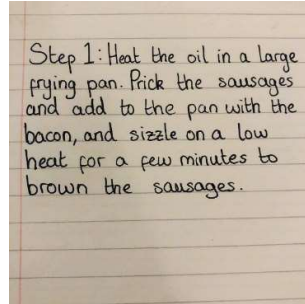 Step 1: Heat the oil in a large
frying pan. Prick the sausages
and add to the pan with the
bacon, and sizzle on a low
heat for a few minutes to
brown the sausages.